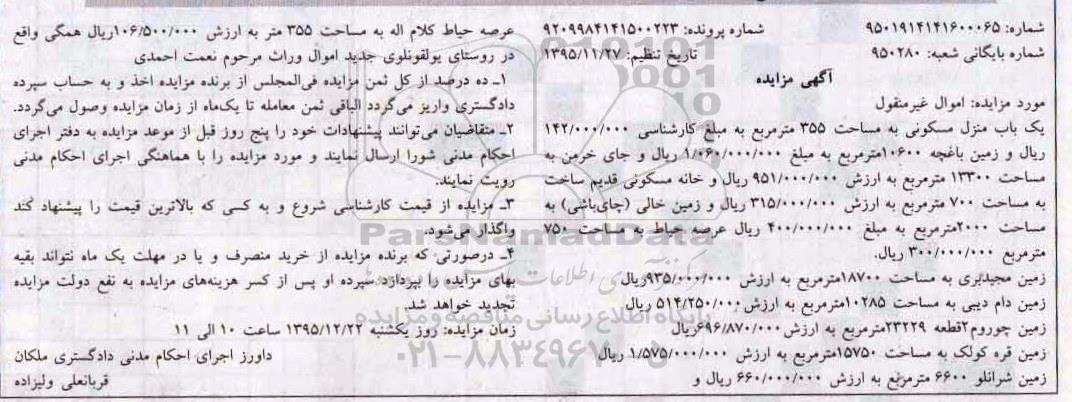 شماره: ۹۵۰۱۹۱۴۱۴۱۶۰۰۰۶۵
شماره پرونده: ۹۲۰۹۹۸۴۱۴۱۵۰۰۲۲۳
شماره بایگانی شعبه: ۹۵۰۲۸۰
تاریخ تنظیم: ۱۳۹۵/۱۱/۲۷
آگهی مزایده
مورد مزایده: اموال غیرمنقول
یک باب منزل مسکونی به مساحت ۳۵۵ مترمربع به مبلغ کارشناسی ۱۴۲/۰۰۰/۰۰۰
ریال و زمین باغچه ۱۰۶۰۰مترمربع به مبلغ ۱/۰۶۰/۰۰۰/۰۰۰ ریال و جای خرمن به
مساحت ۱۳۳۰۰ مترمربع به ارزش ۹۵۱/۰۰۰/۰۰۰ ریال و خانه مسکونی قدیم ساخت
به مساحت ۷۰۰ مترمربع به ارزش ۳۱۵/۰۰۰/۰۰۰ ریال و زمین خالی (جای‌باشی) به
مساحت ۲۰۰۰مترمربع به مبلغ ۴۰۰/۰۰۰/۰۰۰ ریال عرصه حیاط به مساحت ۷۵۰
مترمربع ۳۰۰/۰۰۰/۰۰۰ ریال.
زمین مجیدبری به مساحت ۱۸۷۰۰مترمربع به ارزش ۹۳۵/۰۰۰/۰۰۰ریال
زمین دام دیبی به مساحت ۱۰۲۸۵مترمربع به ارزش ۵۱۴/۲۵۰/۰۰۰ ریال
زمین چوروم۲قطعه ۲۳۲۲۹مترمربع به ارزش ۶۹۶/۸۷۰/۰۰۰ریال
زمین قره کولک به مساحت ۱۵۷۵۰مترمربع به ارزش ۱/۵۷۵/۰۰۰/۰۰۰ ریال
زمین شرانلو ۶۶۰۰ مترمربع به ارزش ۶۶۰/۰۰۰/۰۰۰ ریال و
عرصه حیاط کلام اله به مساحت ۳۵۵ متر به ارزش ۱۰۶/۵۰۰/۰۰۰ریال همگی واقع
در روستای یولقونلوی جدید اموال وراث مرحوم نعمت احمدی
۱ـ ده درصد از کل ثمن مزایده فی‌المجلس از برنده مزایده اخذ و به حساب سپرده
دادگستری واریز می‌گردد الباقی ثمن معامله تا یک‌ماه از زمان مزایده وصول می‌گردد.
۲ـ متقاضیان می‌توانند پیشنهادات خود را پنج روز قبل از موعد مزایده به دفتر اجرای
احکام مدنی شورا ارسال نمایند و مورد مزایده را با هماهنگی اجرای احکام مدنی
رویت نمایند.
۳ـ مزایده از قیمت کارشناسی شروع و به کسی که بالاترین قیمت را پیشنهاد کند
واگذار می‌شود.
۴ـ درصورتی که برنده مزایده از خرید منصرف و یا در مهلت یک ماه نتواند بقیه
بهای مزایده را بپردازد سپرده او پس از کسر هزینه‌های مزایده به نفع دولت مزایده
تجدید خواهد شد.
زمان مزایده: روز یکشنبه ۱۳۹۵/۱۲/۲۲ ساعت ۱۰ الی ۱۱
داورز اجرای احکام مدنی دادگستری ملکان
قربانعلی ولیزاده
ParsNamadData
پایگاه اطلاع رسانی مناقصه و مزایده
۰۲۱-۸۸۳۴۹۶۷۰-۵